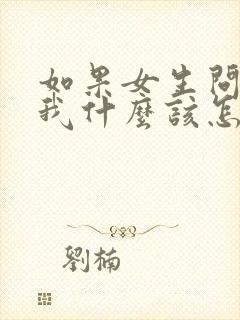 如果女生問
我什麼該怎
劉楠